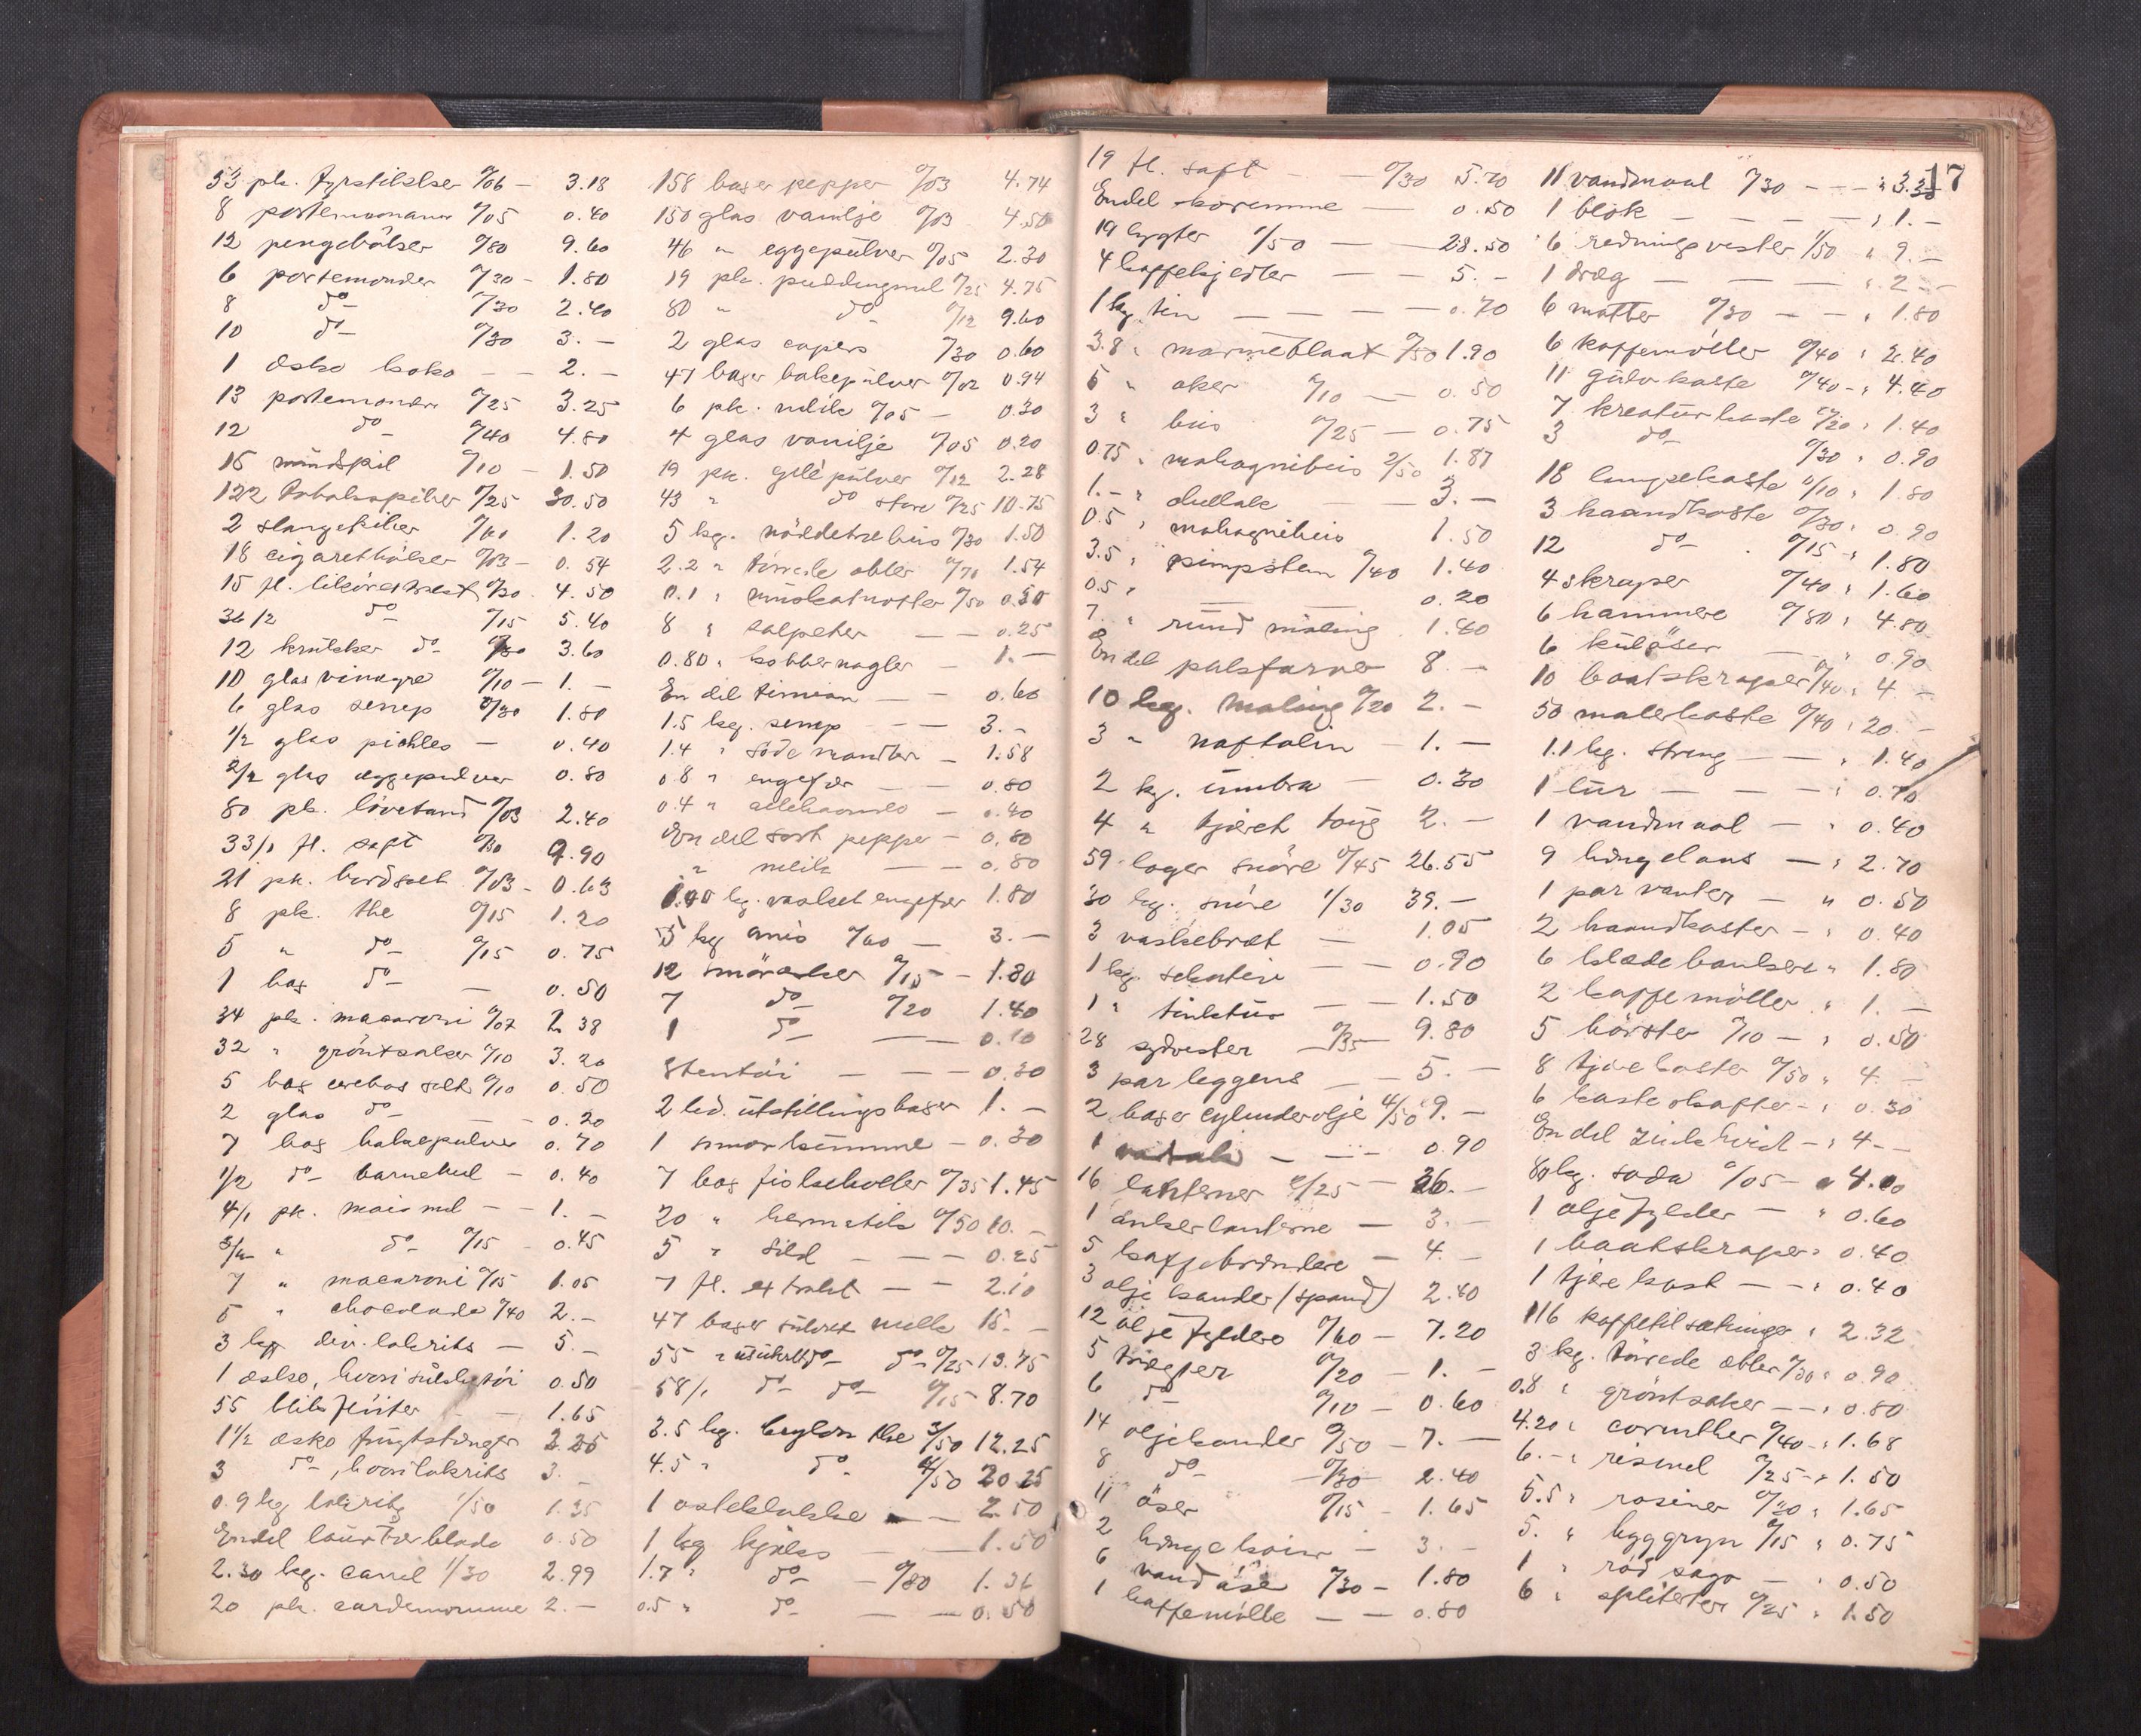 53 pk. fyrstikker 0/06 – 3.18
8 portemonaner 0/05 0.40
12 pengebölser 0/80 9.60
6 portemonder 0/30 – 1.80
8 do– 0/30 2.40
10 do– 0/30 3.–
1 æske koko – – 2.–
13 portemonder 0/25 3.25
12 do– 0/40 4.80
15 mundspil 0/10 – 1.50
122 tobakspiber 0/25 30.50
2 slangepiber 0/60 1.20
18 cigarethölser 0/03 – 0.54
15 fl. likörextrakt 0/30 4.50
36 1/2 do– 0/15 5.40
12 krukker do– 0/30 3.60
10 glas vinagre 0/10 – 1.–
6 glas senep 0/30 1.80
1/2 glas pickles – 0.40
2/2 glas æggepulver 0.80
80 pk. lövetand 0/03 2.40
33/1 fl. saft 0/30 9.90
21 pk. bordsalt 0/03 – 0.63
8 pk. the 0/15 1.20
5 " do– 0/15 0.75
1 box do– – 0.50
34 pk. macaroni 0/07 2.38
32 " gröntsaker 0/10 3.20
5 box cerebos salt 0/10 0.50
2 glas do– – 0.20
7 box bakepulver 0.70
1/2 do– barnemel – 0.40
4/1 pk. maismel – – 1.–
3/2 " do– 0/15 – 0.45
7 " macaroni 0/15 1.05
5 " chocolade 0/40 2.–
3 kg div. lakrits – 5.–
1 æske, hvori sukkertöi 0.50
55 blikflöiter – – 1.65
1 1/2 æske frugtstænger 2.25
3 do–, hvori lakrits 3.–
0.9 kg lakrits 1/50 1.35
Endel laurbærblade 0.50
2.30 kg. canel 1/30 2.99
20 pk. cardemomme 2.–
158 baxer pepper 0/03 4.74
150 glas vanilje 0/03 4.50
46 " eggepulver 0/05 2.30
19 pk. puddingmel 0/25 4.75
80 " do– 0/12 9.60
2 glas capers 0/30 0.60
47 baxer bakepulver 0/02 0.94
6 pk. nelik 0/05 – 0.30
4 glas vanilje 0/05 0.20
19 pk. gelépulver 0/12 2.28
43 " do store 0/25 10.75
5 kg. nöddetrebeis 0/30 1.50
2.2 " törrede æbler 0/70 1.54
0.1 " muskatnötter 0/50 0.50
8 " salpeter – – 0.25
0.80 " kobbernagler – 1.–
En del timian – – 0.60
1.5 kg. senep – – 3.–
1.4 " söde mandler – 1.58
0.8 " engefær – – 0.80
0.4 " allehaande – 0.40
En del sort pepper – 0.80
" nelik – – 0.80
kg. vasket engefær 1.80
5 kg anis 0/60 – 3.–
12 smöræsker 0/15 – 1.80
7 do– 0/20 1.40
1 do– – – 0.10
Stentöi – – – 0.30
2 bd. utstillingsbaxer 1.–
1 smörkumme – 0.30
7 box fiskeboller 0/35 1.45
20 " hermetik 0/50 10.–
5 " sild – – – 0.25
7 fl. extrakt – – 2.10
47 baxer sukret melk 15.–
55 " usukret do– do– 0/25 13.75
58/1 do– do– 0/15 8.70
3.5 kg. Ceylon the 3/50 12.25
4.5 " do– 4/50 20.25
1 osteklokke – – 2.50
1 kg kjæks – – 1.50
1.7 " do– – 0/80 1.36
0.5 " do– – – 0.50
17
19 fl. saft – – 0/30 5.70
Endel – 0.50
19 lygter 1/50 – – 28.50
4 kaffekjedler – – 5.–
1 kg. tin – – – – 0.70
3.8 " marineblaat 0/50 1.90
5 " oker 0/10 – 0.50
3 " beis 0/25 – 0.75
0.75 " mahagnibeis 2/50 1.87
1.– " – – 3.–
0.5 " mahagnibeis 1.50
3.5 " pimpsten 0/40 1.40
0.5 " – – 0.20
7. " rund maling 1.40
En del pulsfarver 8.–
10 kg. maling 0/20 2.–
3 " naftalin – 1.–
2 kg. umbra – 0.30
4 " tjæret toug 2.–
59 lager snöre 0/45 26.55
30 kg. snöre 1/30 39.–
3 vaskebræt – 1.05
1 kg. – – 0.90
1 " tinktur – – 1.50
28 sydvester – 0/35 – 9.80
3 par leggens – – 5.–
2 baxer cylinderolje 4/50 9.–
1 – – 0.90
16 lanterner 2/25 – 36.–
1 ankerlanterne – 3.–
5 kaffebrændere – 4.–
3 oljekander (spand) 2.40
12 oljefyldere 0/60 – 7.20
5 trægter 0/20 – 1.–
6 do– 0/10 – 0.60
14 oljekander 0/50 – 7.–
8 do– – 0/30 – 2.40
11 öser 0/15 – 1.65
2 – 3.–
6 vandöse 0/30 – 1.80
1 kaffemölle – – 0.80
11 vandmaal 0/30 – – " 3.30
1 blok – – – – " 1.–
6 redningsvester 1/50 " 9.–
1 dræg – – – " 2.–
6 matter 0/30 – – " 1.80
6 kaffemöller 0/40 " 2.40
11 gulvkoste 0/40 – " 4.40
7 kreaturkoste 0/20 " 1.40
3 do– 0/30 " 0.90
18 lampekoste 0/10 " 1.80
3 haandkoste 0/30 " 0.90
12 do– 0/15 " 1.80
4 skraper 0/40 " 1.60
6 hammere 0/80 " 4.80
6 kulöser – " 0.90
10 baatskraper 0/40 " 4.–
50 malerkoste 0/40 " 20.–
1.1 kg. streng – – " 1.40
1 lur – – – " 0.70
1 vandmaal – " 0.40
9 hængelaas – " 2.70
1 par vanter – " 0.50
2 haandkoster – " 0.40
6 klædebankere " 1.80
2 kaffemöller " 1.–
5 börster 0/10 – " 0.50
8 tjærekoster 0/50 " 4.–
6 kosteskafter – " 0.30
En del zinkhvidt – " 4.–
80 kg. soda 0/05 – " 4.00
1 oljefylder – " 0.60
1 baatskraper " 0.40
1 tjærekost – – " 0.40
116 kaffetilsætninger " 2.32
3 kg. törrede æbler 0/30 " 0.90
0.8 " gröntsaker – – " 0.80
4.20 " corinther 0/40 – " 1.68
6.– " rismel 0/25 – " 1.50
5.5 " rosiner 0/30 " 1.65
5. " bygggryn 0/15 " 0.75
1 " röd sago – " 0.50
6 " spliterter 0/25 " 1.50